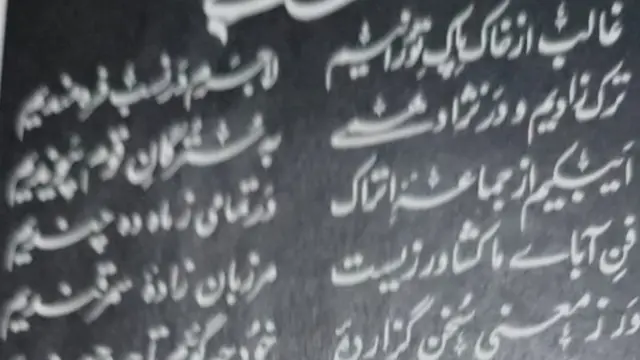 غالب از خاک پاک تورانیم
لاجرم در نسب فرہ مندیم
ترک زادیم و در نژاد ہمے
بہ سترگان قوم پیوندیم
ایبکیم از جماعۂ اتراک
در تمامی ز ماہ دہ چندیم
فن آبائے ما کشاورزیست
مرزبان زادۂ سمرقندیم
ور ز معنی سخن گزاردۂ
خود چہ گوئیم تا